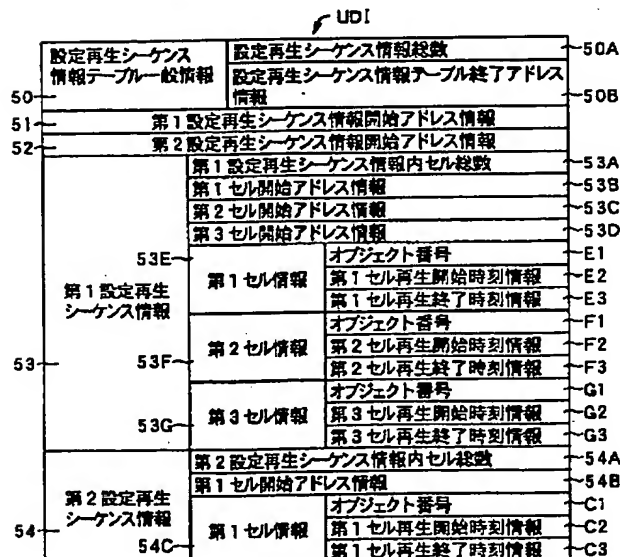 UDI
設定再生シーケンス
情報テーブル一般情報
50
設定再生シーケンス情報総数
50A
設定再生シーケンス情報テーブル終了アドレス
情報
50B
51
第1設定再生シーケンス情報開始アドレス情報
52
第2設定再生シーケンス情報開始アドレス情報
53
第1設定再生
シーケンス情報
第1設定再生シーケンス情報内セル総数
53A
第1セル開始アドレス情報
53B
第2セル開始アドレス情報
53C
第3セル開始アドレス情報
53D
53E
第1セル情報
オブジェクト番号
E1
第1セル再生開始時刻情報
E2
第1セル再生終了時刻情報
E3
53F
第2セル情報
オブジェクト番号
F1
第2セル再生開始時刻情報
F2
第2セル再生終了時刻情報
F3
53G
第3セル情報
オブジェクト番号
G1
第3セル再生開始時刻情報
G2
第3セル再生終了時刻情報
G3
54
第2設定再生
シーケンス情報
第2設定再生シーケンス情報内セル総数
54A
第1セル開始アドレス情報
54B
54C
第1セル情報
オブジェクト番号
C1
第1セル再生開始時刻情報
C2
第1セル再生終了時刻情報
C3